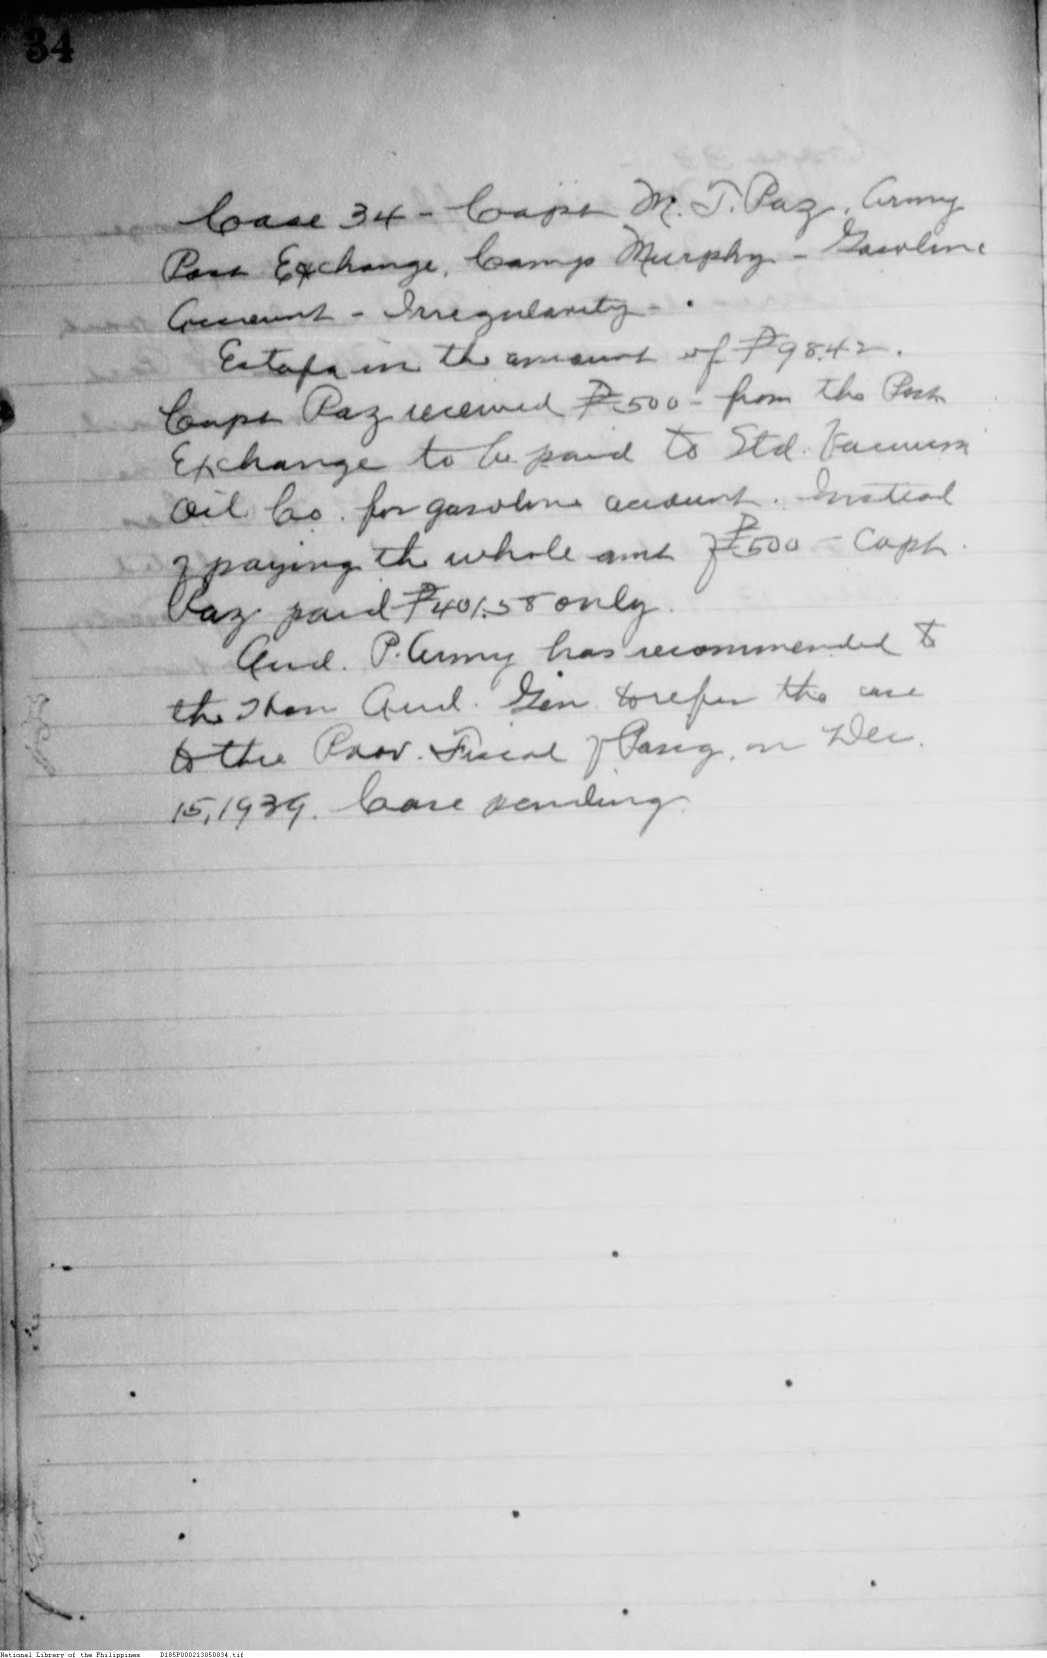 34
Case 34 - Capt M. T. Paz, Army
Post Exchange, Camp Murphy - Gasoline
Account - Irregularity -
Estafa in the amount of ₱98.42.
Capt Paz received ₱500 - from the Post
Exchange to be paid to Std. Vacuum
Oil Co. for gasoline account. Instead
of paying the whole amt of ₱500 - Capt.
Paz paid ₱401.58 only.
Aud. P. Army has recommended to
the Hon Aud. Gen. to refer the case
to the Prov. Fiscal of Pasig, on Dec.
15, 1939. Case pending.
National Library of the Philippines D185P000213050034.tif